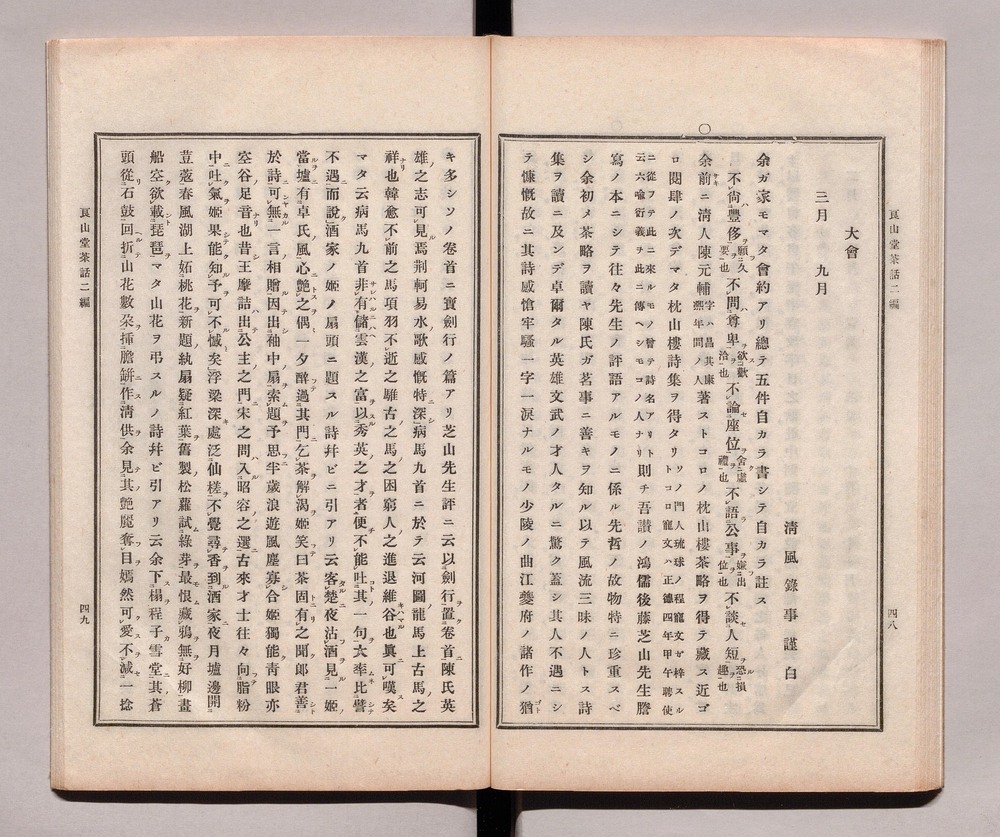 良山堂茶話二編
四八
大會
三月 九月
淸風錄事謹白
○
余ガ家モマタ會約アリ總テ五件自カラ書シテ自カラ註ス
不尙豐侈願久要也不問尊卑欲歡洽也不論座位舍虛禮也不語公事嫌出位也不談人短恐損趣也
余前ニ淸人陳元輔字ハ昌其康熙年間ノ人著ストコロノ枕山樓茶略ヲ得テ藏ス近ゴ
ロ閱肆ノ次デマタ枕山樓詩集ヲ得タリソノ門人琉球ノ程寵文ガ梓スルトコロ寵文ハ正德四年甲午聘使
ニ從フテ此ニ來ルモノ曾テ詩名アリト云六喩衍義ヲ此ニ傳ヘシモコノ人ナリ則チ吾讚ノ鴻儒後藤芝山先生謄
寫ノ本ニシテ往々先生ノ評語アルモノニ係ル先哲ノ故物特ニ珍重スベ
シ余初メ茶略ヲ讀ヤ陳氏ガ茗事ニ善キヲ知ル以テ風流三昧ノ人トス詩
集ヲ讀ニ及ンデ卓爾タル英雄文武ノ才人タルニ驚ク蓋シ其人不遇ニシ
テ慷慨故ニ其詩感愴牢騷一字一淚ナルモノ少陵ノ曲江夔府ノ諸作ノ猶ゴト
キ多シソノ卷首ニ寶劍行ノ篇アリ芝山先生評ニ云以劍行置卷首陳氏英
雄之志可見焉荆軻易水歌感慨特深病馬九首ニ於テ云河圖龍馬上古馬之
祥也韓愈不前之馬項羽不逝之騅古之馬之困窮人之進退維谷也眞可嘆矣
マタ云病馬九首非有儲雲漢之富以秀英之才者便不能吐其一句大率比譬
不遇而說酒家ノ姬ノ扇頭ニ題スル詩幷ビニ引アリ云客楚夜沽酒見一姬
當壚有卓氏風心艷之偶一夕醉過其門乞茶解渴姬笑曰茶固有之聞郞君善
於詩可無一言相贈因出袖中扇索題予思半歲浪遊風塵寡合姬獨能靑眼亦
空谷足音也昔王摩詰出公主之門宋之問入昭容之選古來才士往々向脂粉
中吐氣姬果能知予可不憾矣浮梁深處泛仙槎不覺尋香到酒家夜月壚邊開
荳蔻春風湖上妬桃花新題紈扇疑紅葉舊製松蘿試綠芽最恨藏鴉無好柳畫
船空欲載琵琶マタ山花ヲ弔スルノ詩幷ビ引アリ云余下榻程子雪堂其蒼
頭從石鼓回折山花數朶揷膽缾作淸供余見其艷麗奪目嫣然可愛不減一捻
良山堂茶話二編
四九